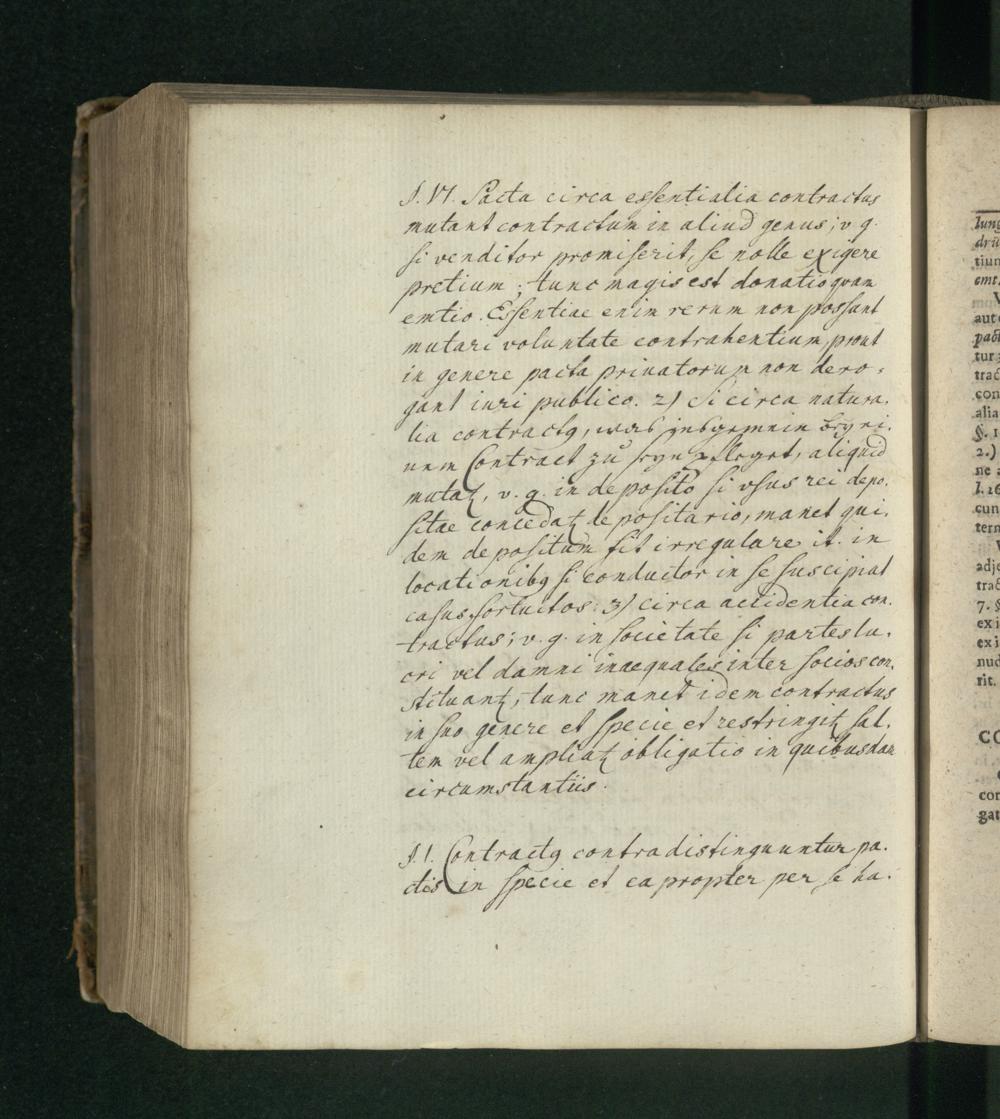 §. VI. Pacta circa essentialia contractus
mutant contractum in aliud genus; v. g.
si venditor promiserit, se nolle exigere
pretium; tunc magis est donatio quam
emtio. Essentiae enim rerum non possunt
mutari voluntate contrahentium, prout
in genere pacta privatorum non dero-
gant iuri publico. 2) Si circa natura-
lia contractq, was insgemein bey ei-
nem Contract zu seyn pfleget, aliquid
mutatz, v. g. in deposito si usus rei depo-
sitae concedatz depositario, manet qui-
dem depositum sit irregulare it. in
locationibq si conductor in se suscipiat
casus fortuitos. 3) circa accidentia con-
tractus; v. g. in societate si partes lu-
cri vel damni inaequales inter socios con-
stituantz, tunc manet idem contractus
in suo genere et specie et restringitz sal-
tem vel ampliatz obligatio in quibusdam
circumstantiis.
§. I. Contractq contradistinguuntur pa-
ctis in specie et ea propter per se ha-
lung
tium
emt.
aut
tur
trac
con
alia
§. 1
2.)
ne a
l. 16
cun
tern
adje
trac
7. §
ex i
ex i
nud
rit.
CO
con
gat